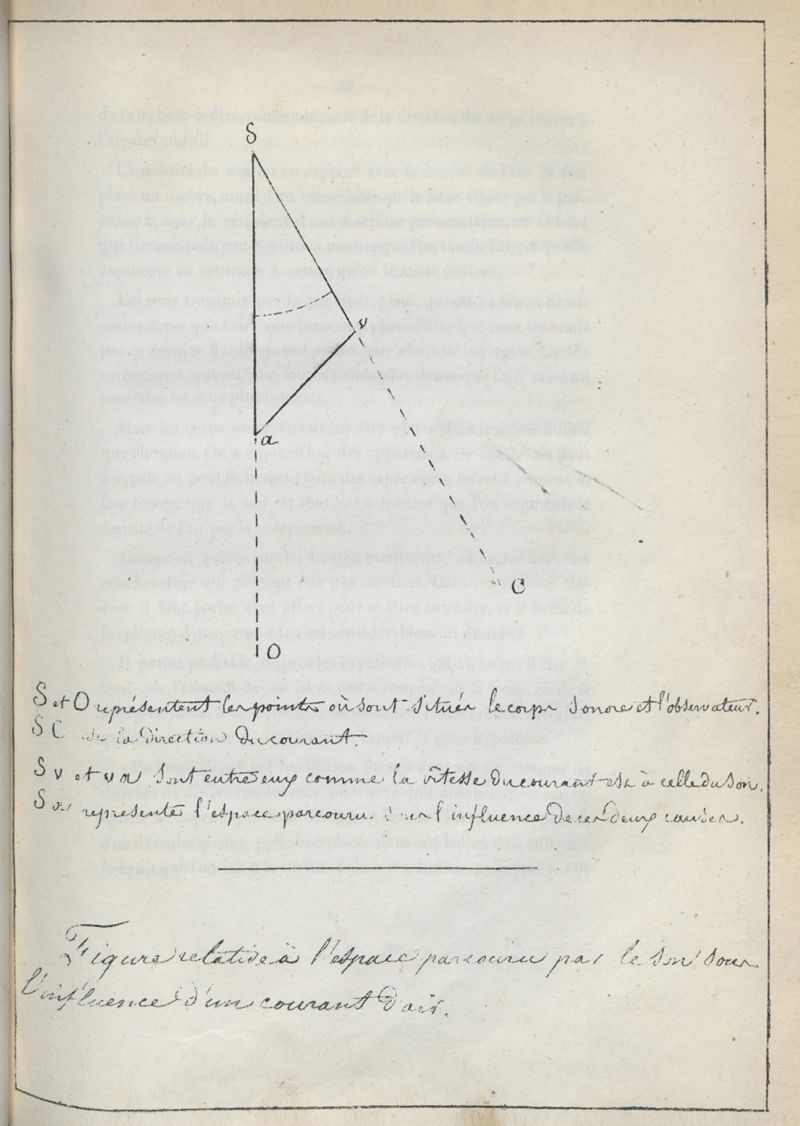 S
v
a
C
O
S et O représentent les points où sont situés le corps sonore et l'observateur.
S C de la Direction Du courant.
S v et v a sont entre eux comme la vitesse du courant est à celle du son.
S a représente l'espace parcouru sur l'influence de ces deux causes.
Figure relative à l'espace parcouru par le son sous
l'influence d'un courant d'air.